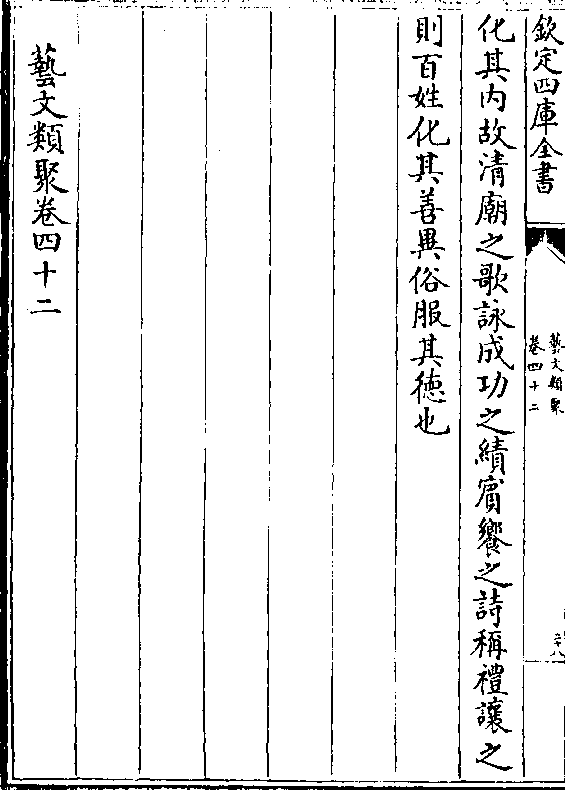 欽定四庫全書
藝文類聚
卷四十二
三十八
化其内故清廟之歌詠成功之績賓饗之詩稱禮讓之
則百姓化其善異俗服其徳也
藝文類聚卷四十二